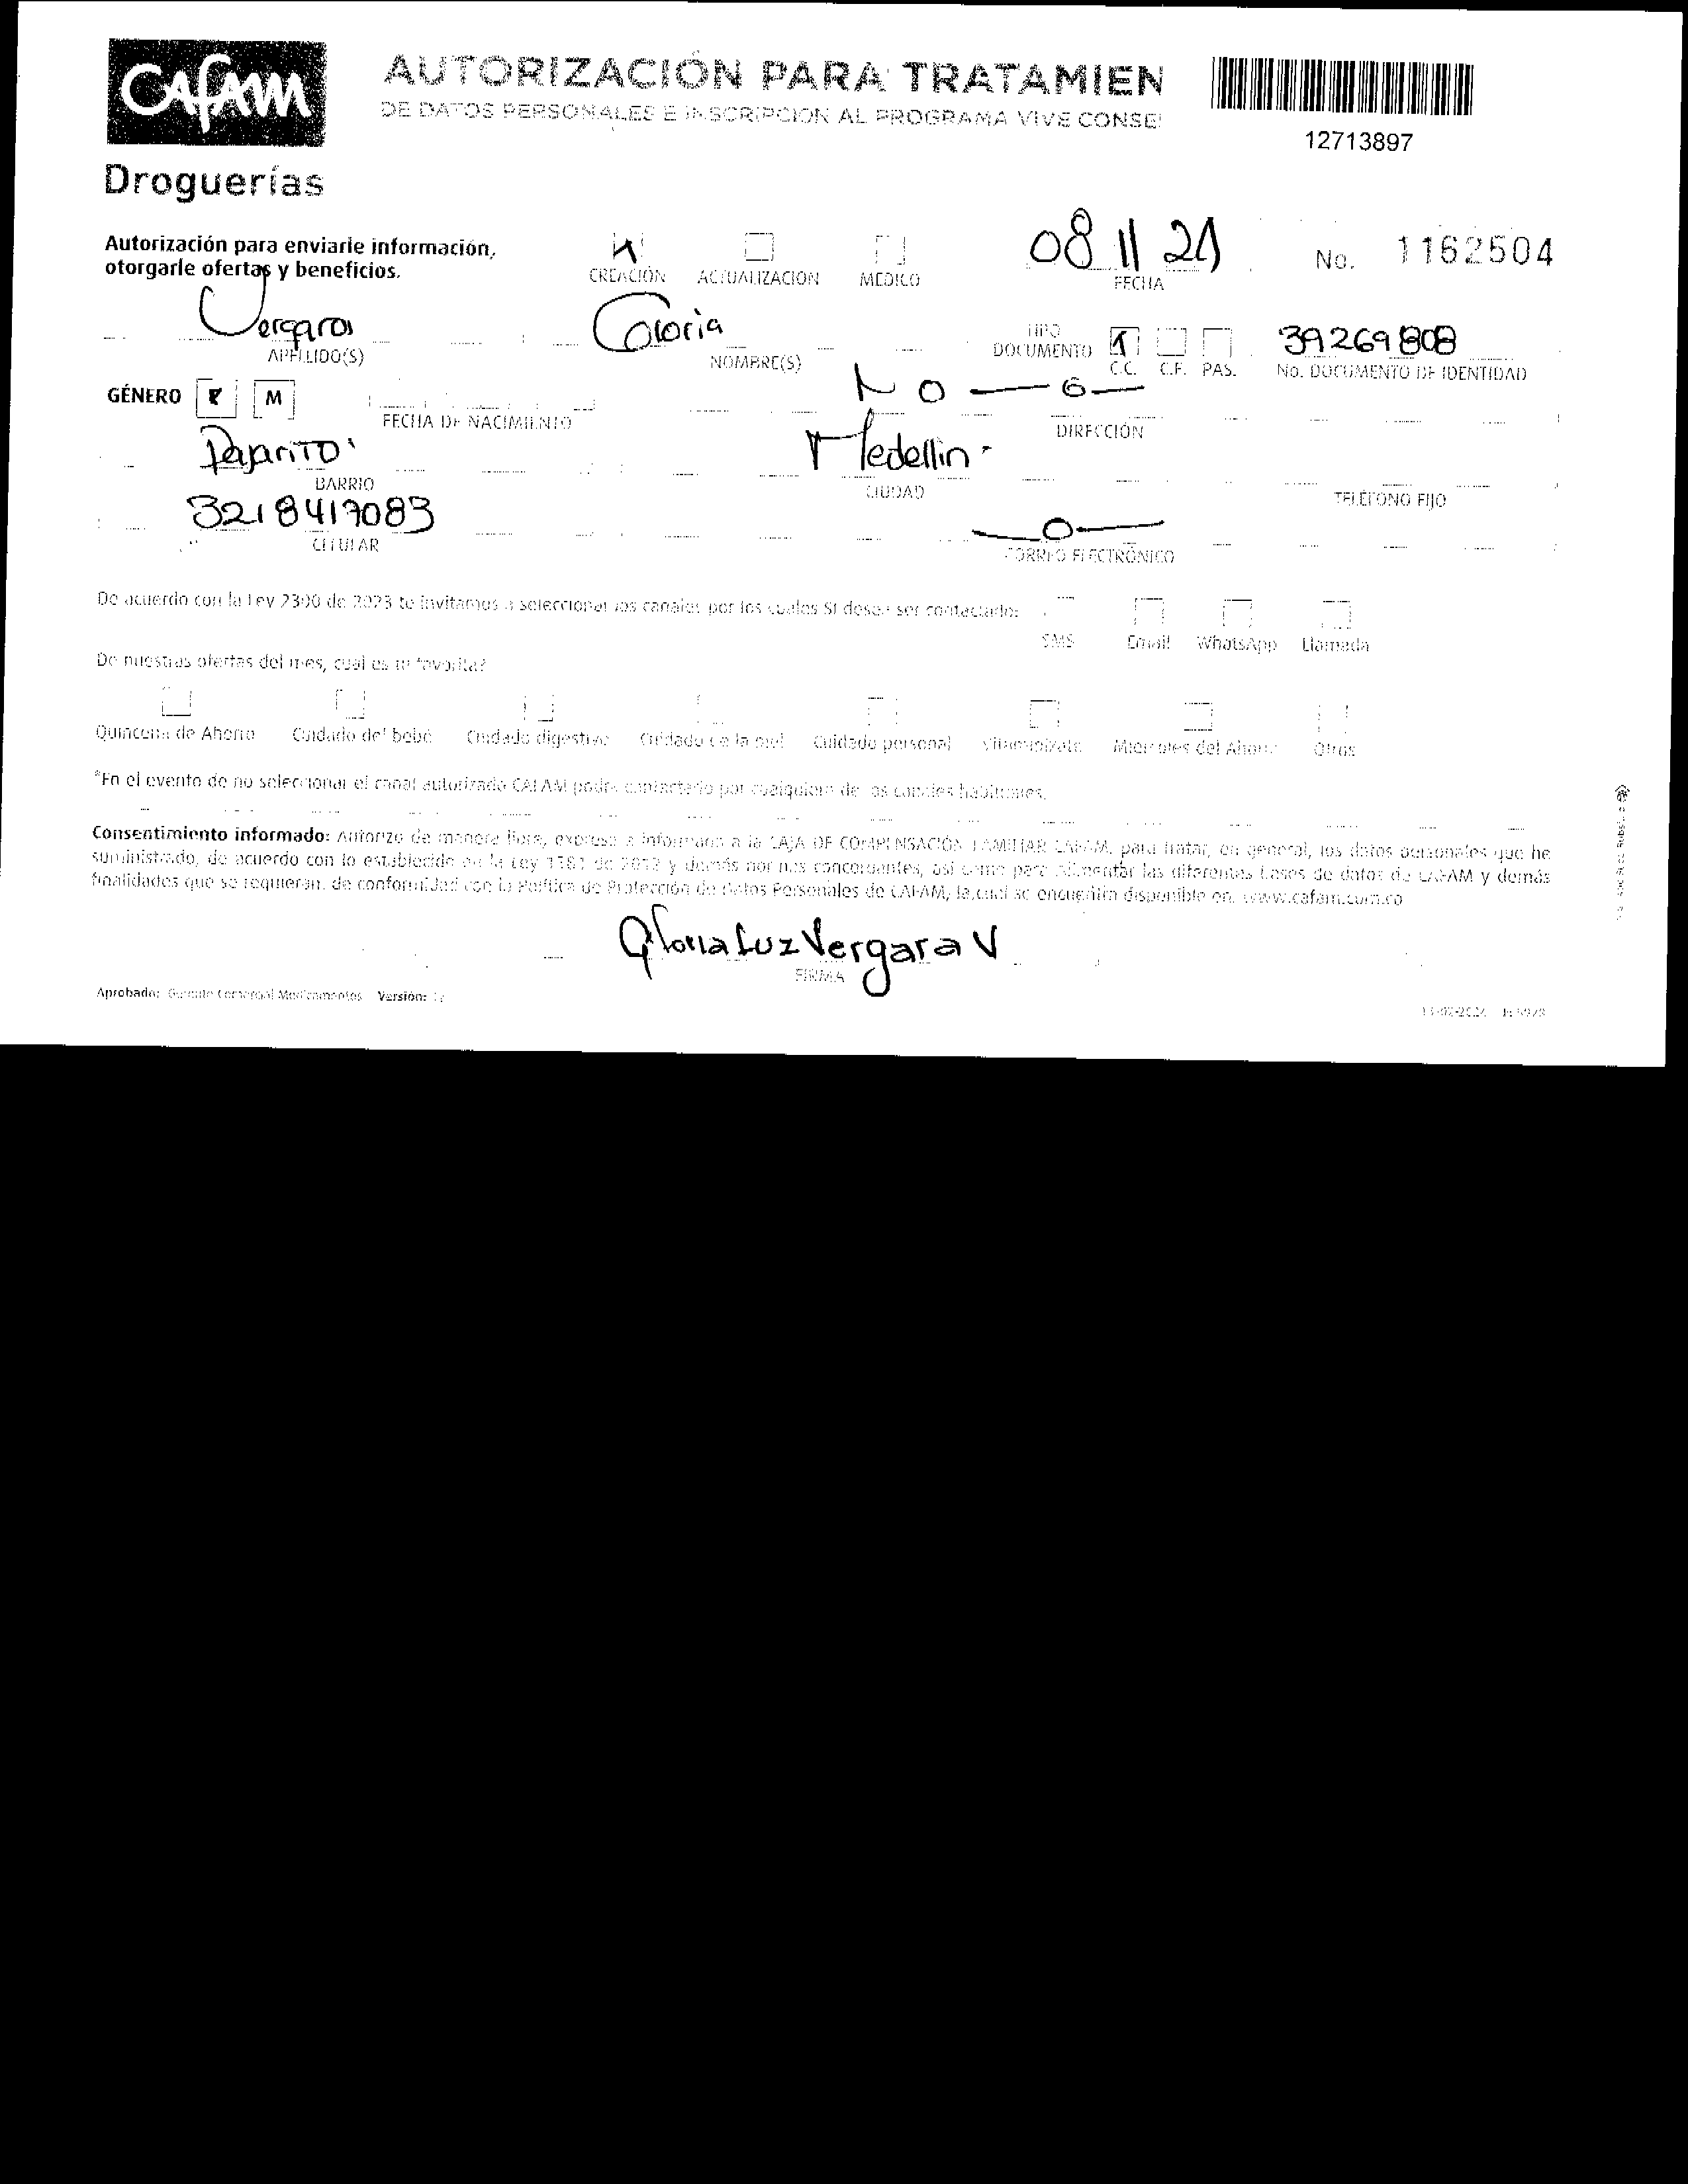 CAFAM
Droguerías
AUTORIZACIÓN PARA TRATAMIEN
DE DATOS PERSONALES E INSCRIPCION AL PROGRAMA VIVE CONSE
12713897
Autorización para enviarle información,
otorgarle ofertas y beneficios.
CREACIÓN ACTUALIZACION MEDICO
08 11 24
FECHA
No. 1162504
Vergara
APELLIDO(S)
Gloria
NOMBRE(S)
TIPO
DOCUMENTO
C.C. C.E. PAS.
39269808
No. DOCUMENTO DE IDENTIDAD
GÉNERO F M
FECHA DE NACIMIENTO
DIRECCIÓN
Pajarito
BARRIO
Medellin
CIUDAD
TELÉFONO FIJO
3218417083
CELULAR
CORREO ELECTRÓNICO
De acuerdo con la Ley 2300 de 2023 te invitamos a seleccionar los canales por los cuales SI desea ser contactado:
SMS Email WhatsApp Llamada
De nuestras ofertas del mes, cual es tu favorita?
Quincena de Ahorro Cuidado del bebé Cuidado digestivo Cuidado de la piel Cuidado personal Vitaminízate Miercoles del Ahorro Otros
*En el evento de no seleccionar el canal autorizado CAFAM podrá contactarlo por cualquiera de los canales habituales.
Consentimiento informado: Autorizo de manera libre, expresa e informada a la CAJA DE COMPENSACIÓN FAMILIAR CAFAM, para tratar, en general, los datos personales que he
suministrado, de acuerdo con lo establecido en la Ley 1581 de 2012 y demás normas concordantes, así como para alimentar las diferentes bases de datos de CAFAM y demás
finalidades que se requieran, de conformidad con la Política de Protección de Datos Personales de CAFAM, la cual se encuentra disponible en: www.cafam.com.co
Gloria Luz Vergara V
FIRMA
Aprobado: Gerente Comercial Medicamentos Versión: